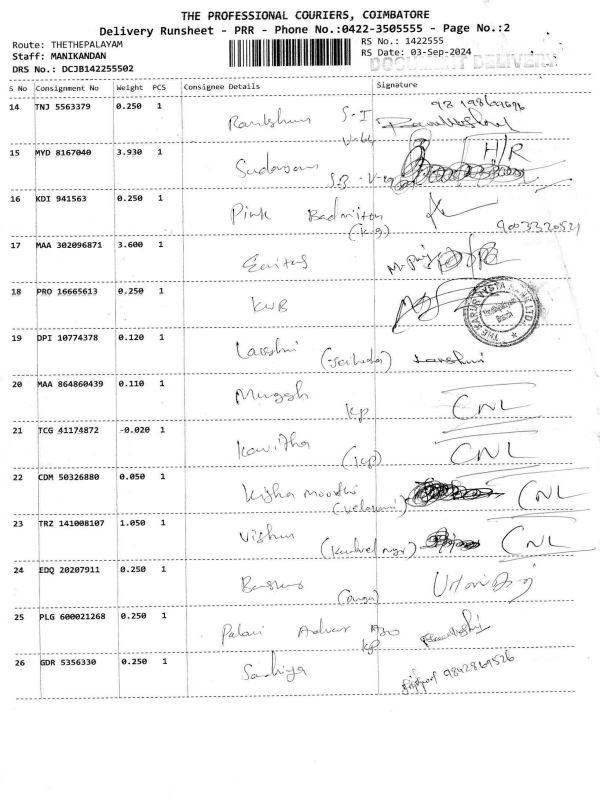 THE PROFESSIONAL COURIERS, COIMBATORE
Delivery Runsheet - PRR - Phone No.:0422-3505555 - Page No.:2
Route: THETHEPALAYAM
RS No.: 1422555
Staff: MANIKANDAN
RS Date: 03-Sep-2024
DOCUMENT DELIVERY
DRS No.: DCJB142255502
S No Consignment No Weight PCS Consignee Details Signature
14 TNJ 5563379 0.250 1
15 MYD 8167040 3.930 1 H/R
16 KDI 941563 0.250 1 Pink Badminton
9003320521
17 MAA 302096871 3.600 1
18 PRO 16665613 0.250 1 KVB
THE KARUR VYSYA BANK LTD.
Branch
19 DPI 10774378 0.120 1 Lakshmi Lakshmi
20 MAA 864860439 0.110 1 Murugesh KP CNL
21 TCG 41174872 -0.020 1 Kavitha (KP) CNL
22 CDM 50326880 0.050 1 CNL
23 TRZ 141008107 1.050 1 Vishnu CNL
24 EDQ 20207911 0.250 1
25 PLG 600021268 0.250 1 Palani KP
26 GDR 5356330 0.250 1 Sandhiya 9842869526